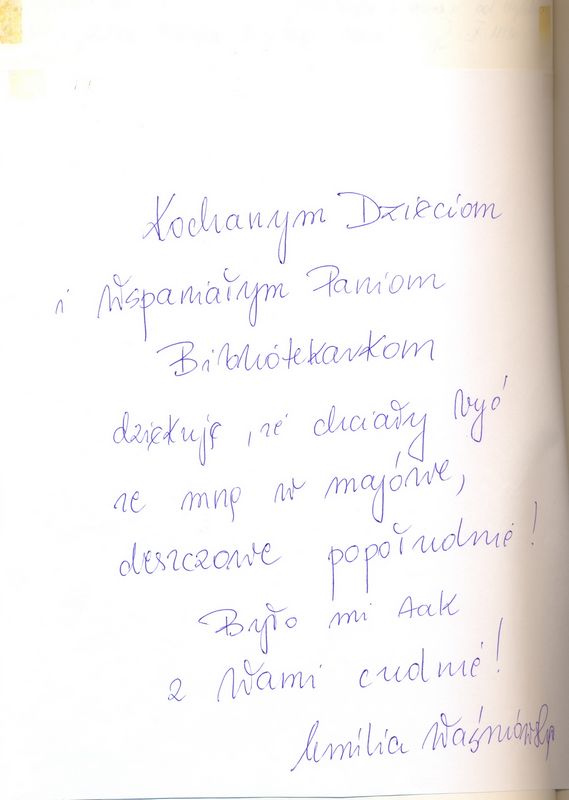 Kochanym Dzieciom
i Wspaniałym Paniom
Bibliotekarkom
dziękuję, że chciały być
ze mną w majowe,
deszczowe popołudnie!
Było mi tak
z Wami cudnie!
Emilia Waśniowska